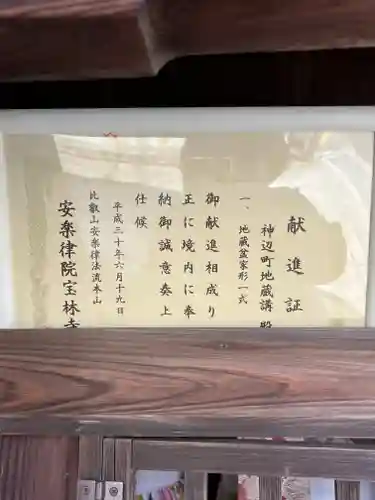 献進証
神辺町地蔵講殿
一、地蔵盆家形一式
御献進相成り
正に境内に奉
納御誠意奏上
仕候
平成三十年六月十九日
比叡山安楽律法流本山
安楽律院宝林寺